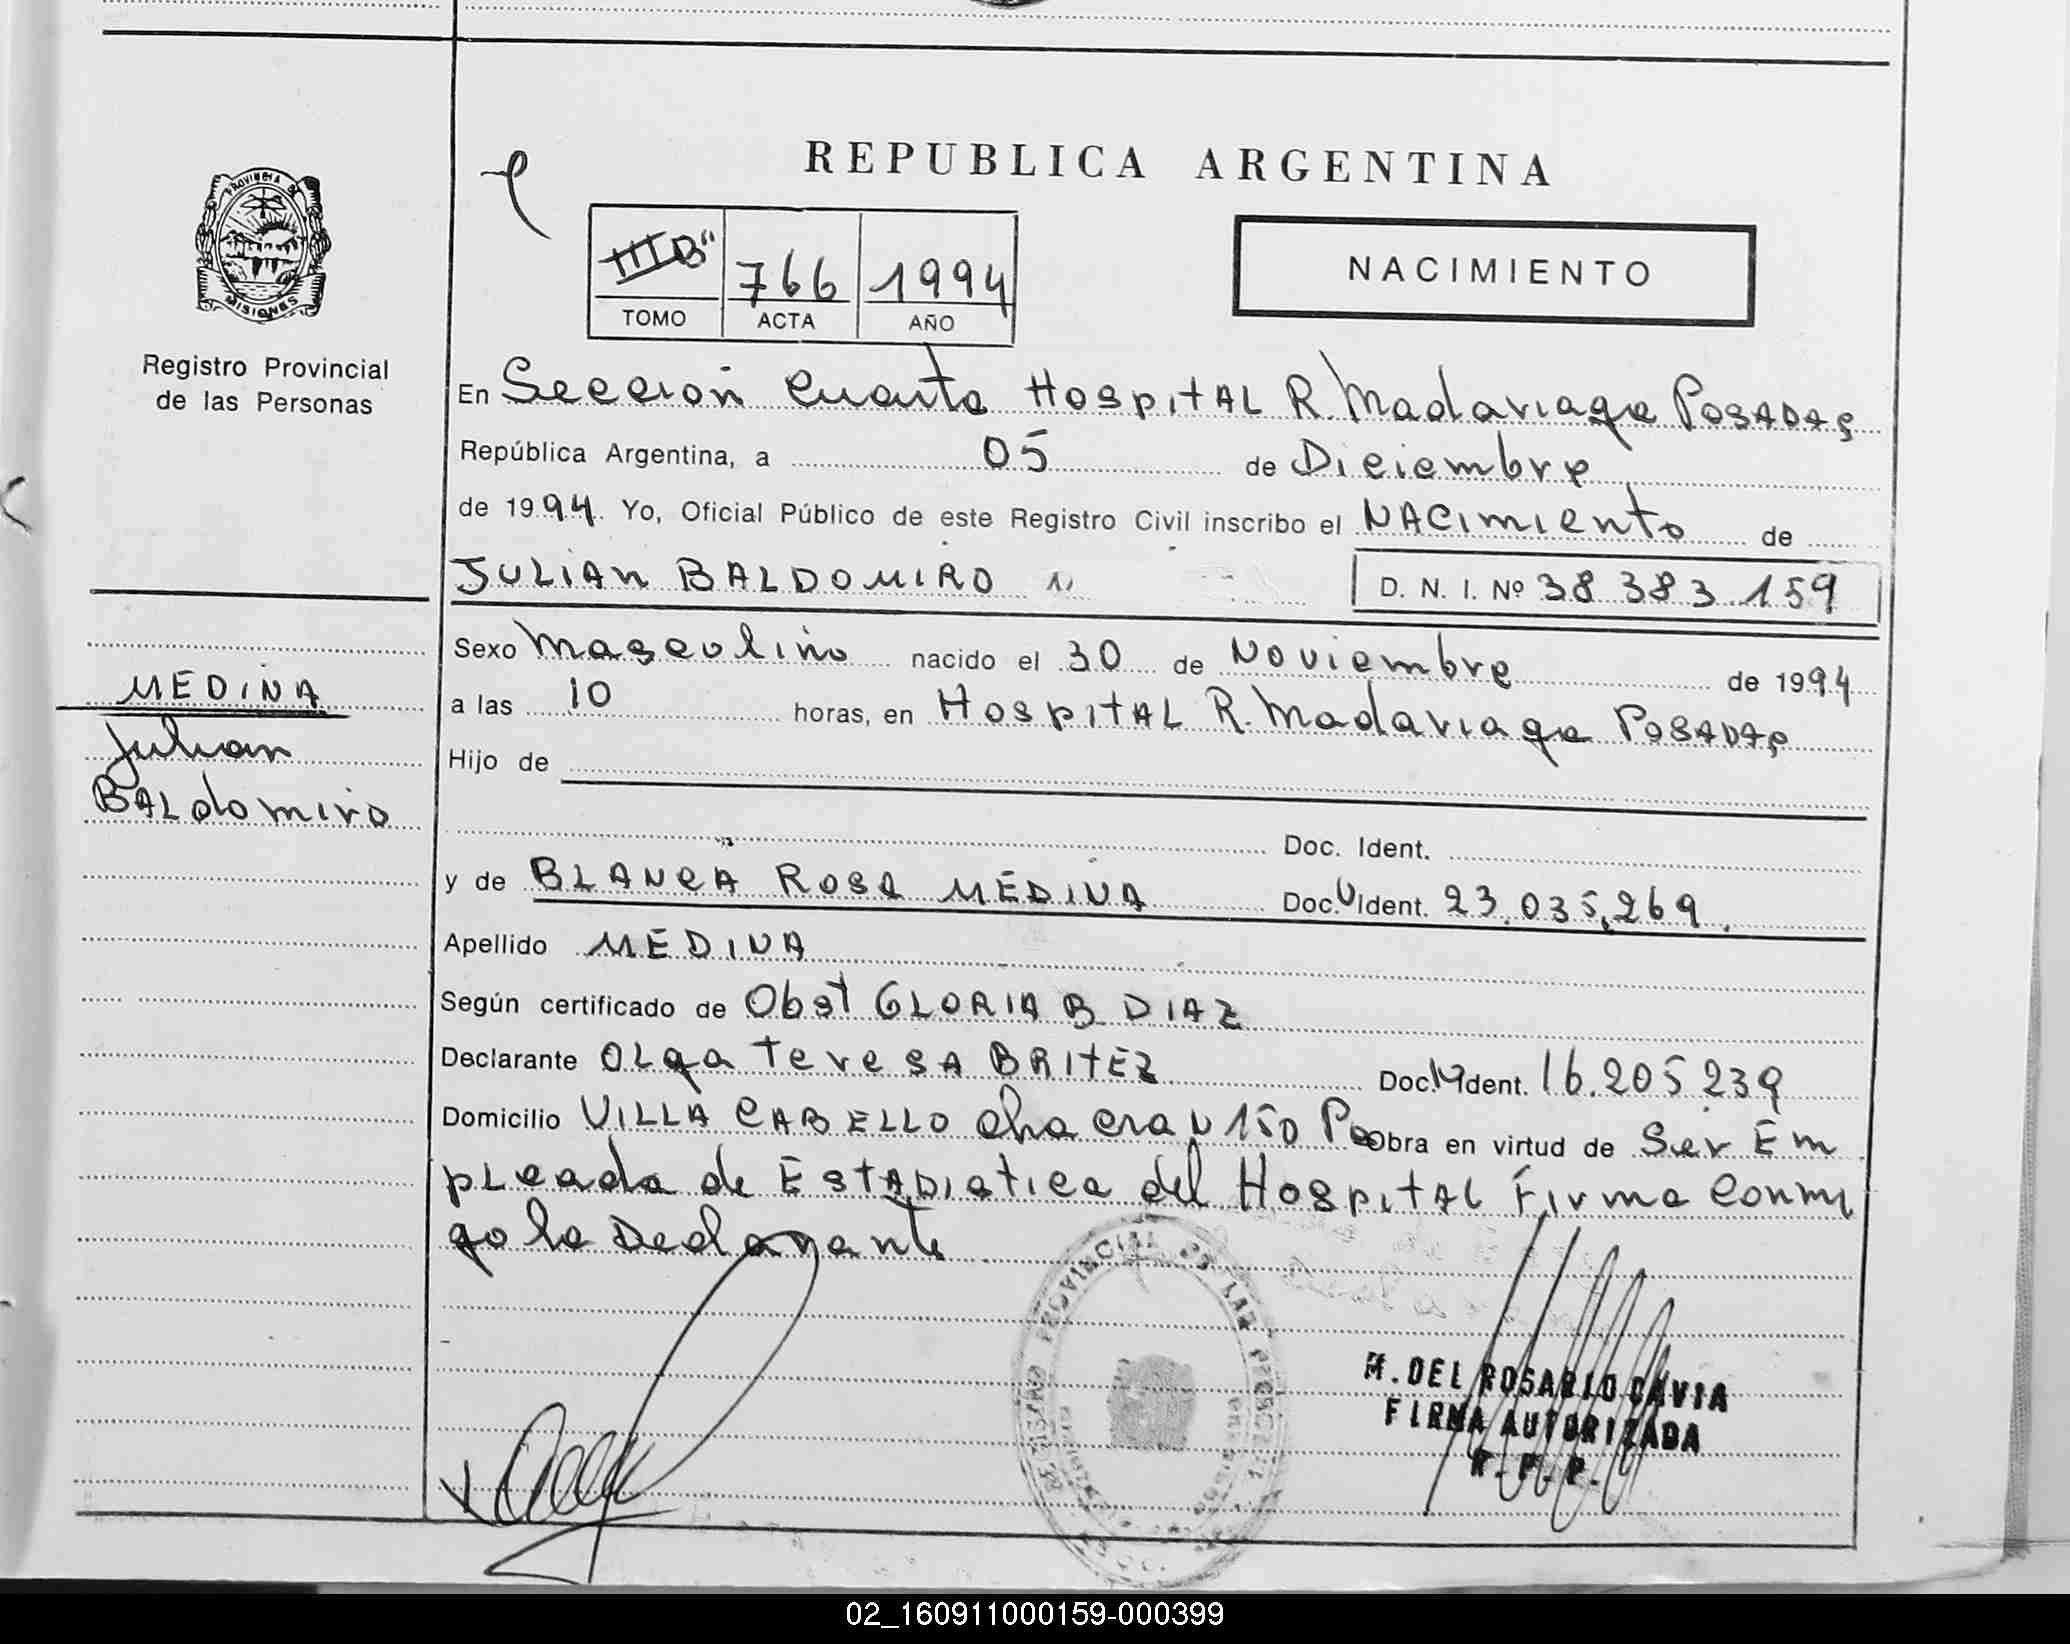 REPUBLICA ARGENTINA
PROVINCIA DE
MISIONES
Registro Provincial
de las Personas
"B"
766
1994
TOMO
ACTA
AÑO
NACIMIENTO
En Sección Cuarta Hospital R. Madariaga Posadas
República Argentina, a 05 de Diciembre
de 1994. Yo, Oficial Público de este Registro Civil inscribo el Nacimiento de
JULIAN BALDOMIRO
D. N. I. Nº 38 383 159
Sexo Masculino nacido el 30 de Noviembre de 1994
MEDINA
Julian
Baldomiro
a las 10 horas, en Hospital R. Madariaga Posadas
Hijo de
Doc. Ident.
y de BLANCA ROSA MEDINA Doc. U Ident. 23.035.269.
Apellido MEDINA
Según certificado de Obst GLORIA B DIAZ
Declarante Olga Teresa BRITEZ Doc. Ident. 16.205.239
Domicilio VILLA CABELLO chacra N 150 Obra en virtud de Ser Em
pleada de Estadistica del Hospital Firma Conmi
go la Declarante
REGISTRO PROVINCIAL DE LAS PERSONAS
M. DEL ROSARIO CAVIA
FIRMA AUTORIZADA
R.P.P.
02_160911000159-000399